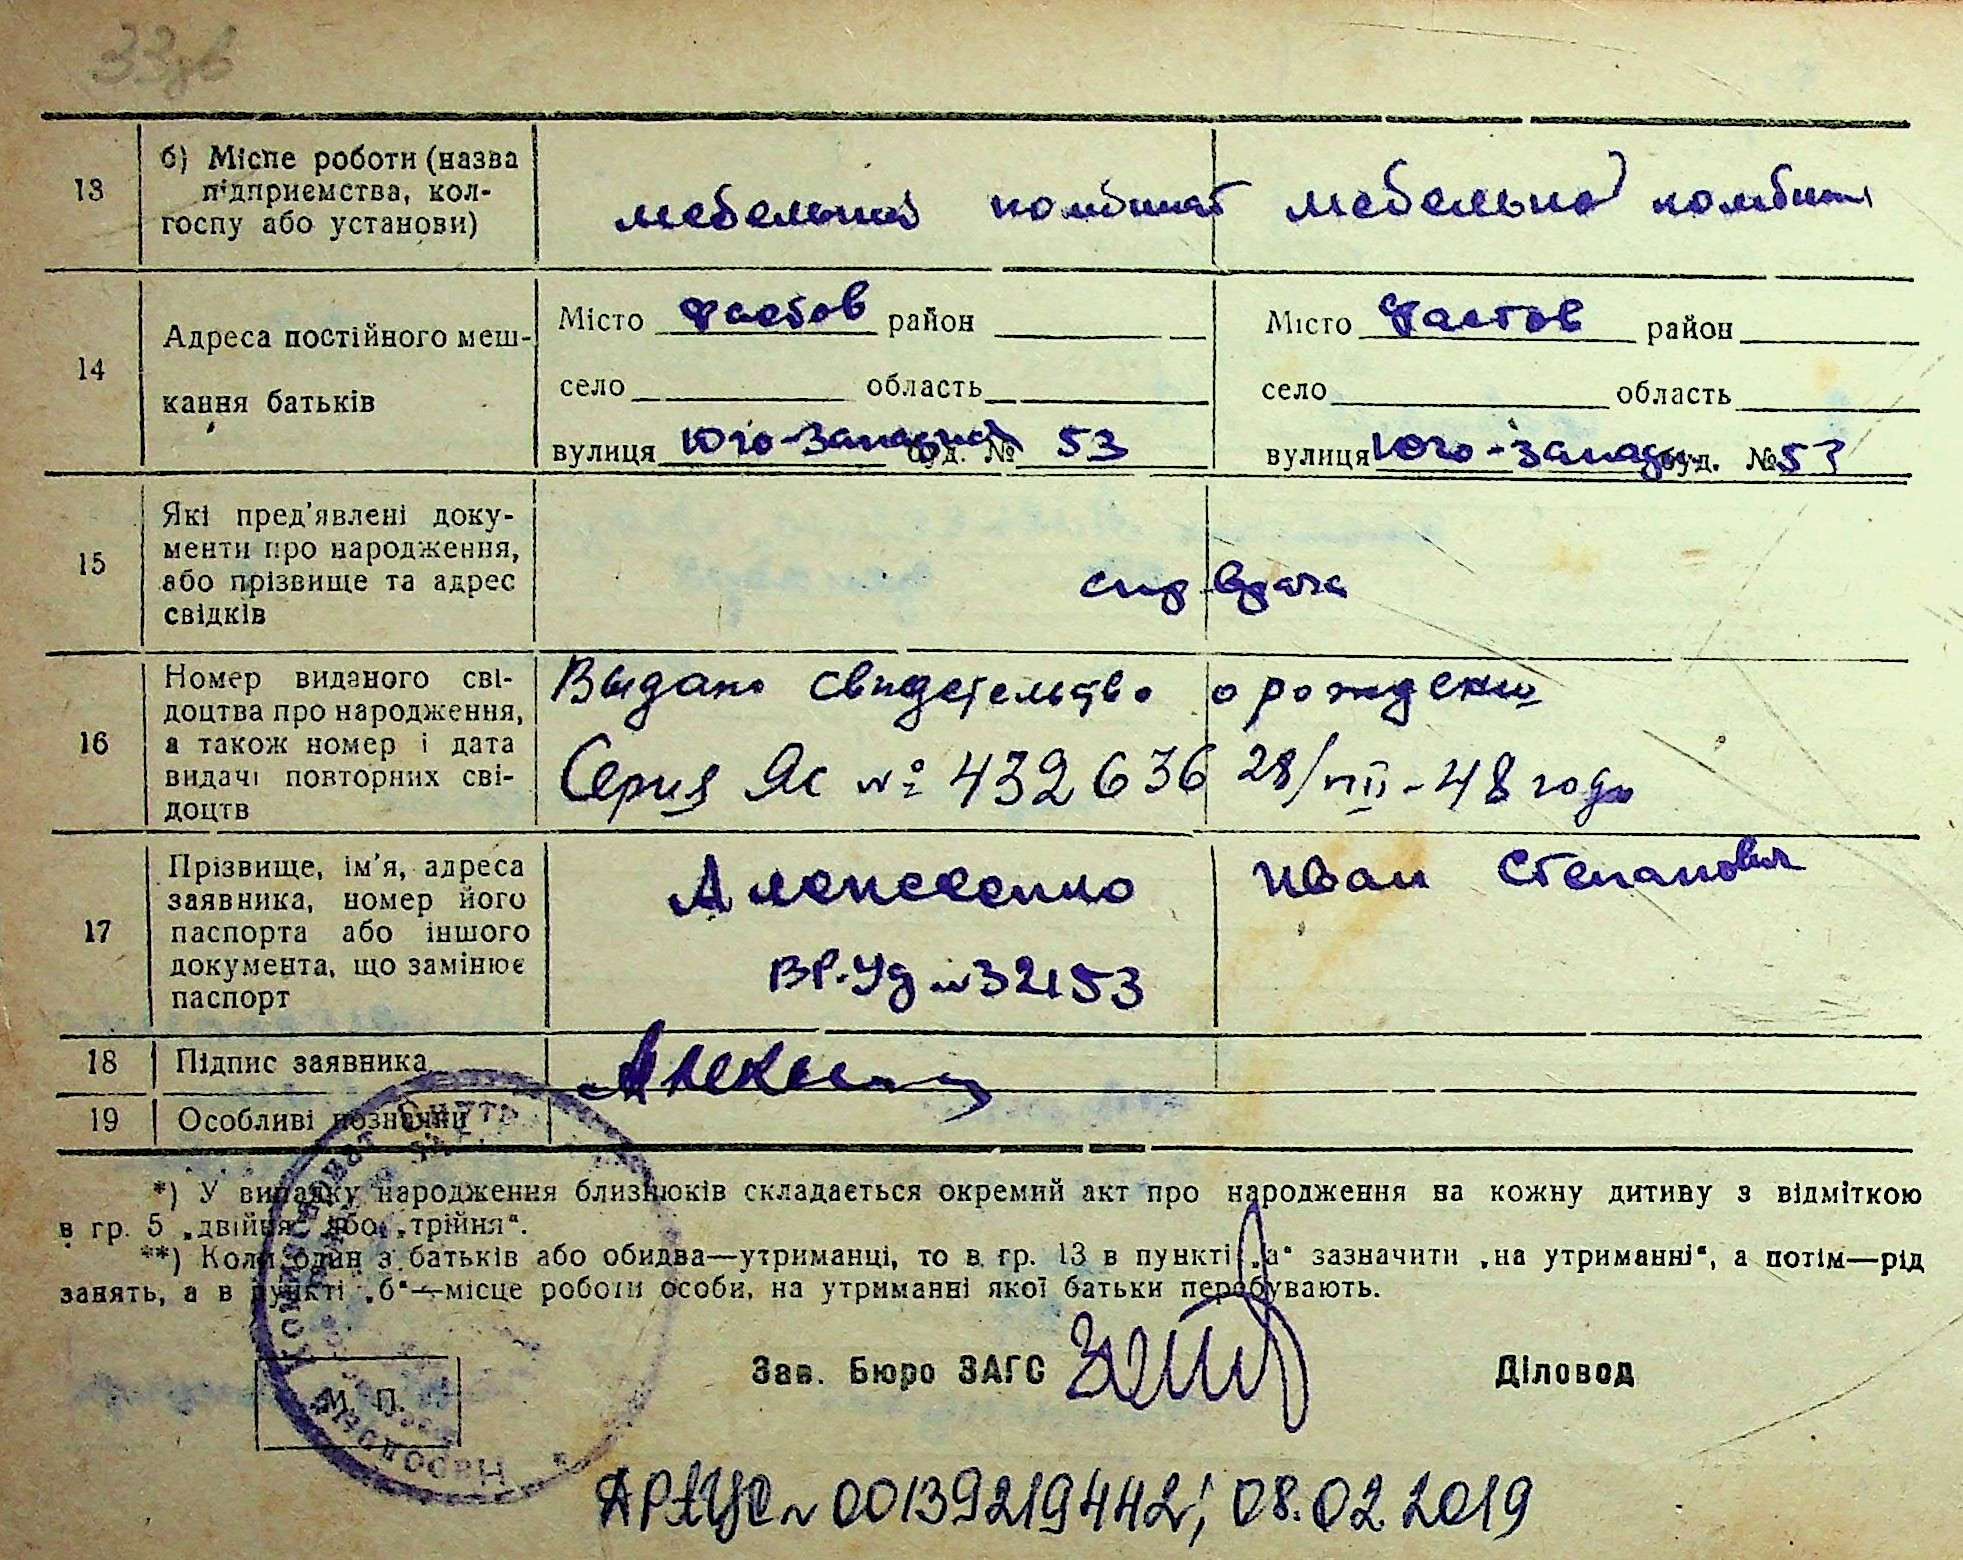 33 зв
13
б) Місце роботи (назва
підприємства, кол-
госпу або установи)
мебельний комбинат мебельно комбинат
14
Адреса постійного меш-
кання батьків
Місто Фастов район
село область
вулиця Юго-Западная буд. № 53
Місто Фастов район
село область
вулиця Юго-Западн буд. № 53
15
Які пред'явлені доку-
менти про народження,
або прізвище та адрес
свідків
спр врача
16
Номер виданого сві-
доцтва про народження,
а також номер і дата
видачі повторних сві-
доцтв
Выдано свидетельство о рождении
Серия Яс № 432636 28/VIII-48 года
17
Прізвище, ім'я, адреса
заявника, номер його
паспорта або іншого
документа, що замінює
паспорт
Алексеенко Иван Степанович
ВР. Уд № 32153
18
Підпис заявника
19
Особливі позначки
*) У випадку народження близнюків складається окремий акт про народження на кожну дитину з відміткою
в гр. 5 „двійня“ або „трійня“.
**) Коли один з батьків або обидва—утриманці, то в гр. 13 в пункті „а“ зазначити „на утриманні“, а потім—рід
занять, а в пункті „б“—місце роботи особи, на утриманні якої батьки перебувають.
М. П.
Зав. Бюро ЗАГС
Діловод
ДРАЦС № 00139219442; 08.02.2019